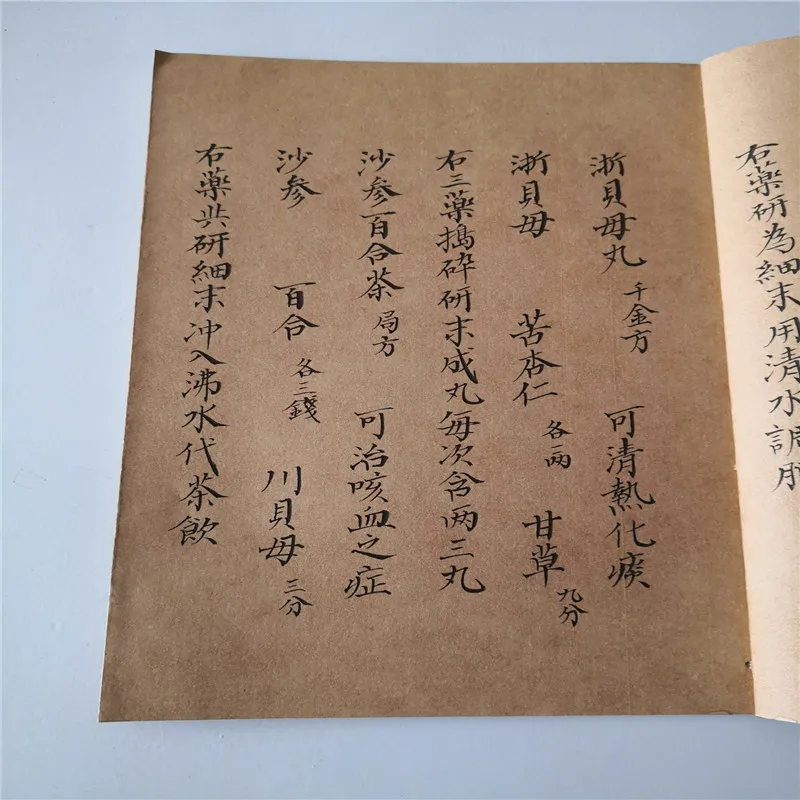 右藥研為細末用清水調服
浙貝毋丸 千金方 可清熱化痰
浙貝毋 苦杏仁 各一兩 甘草 九分
右三藥搗碎研末成丸每次含两三丸
沙参百合茶 局方 可治咳血之症
沙参 百合 各三錢 川貝毋 三分
右藥共研細末冲入沸水代茶飲